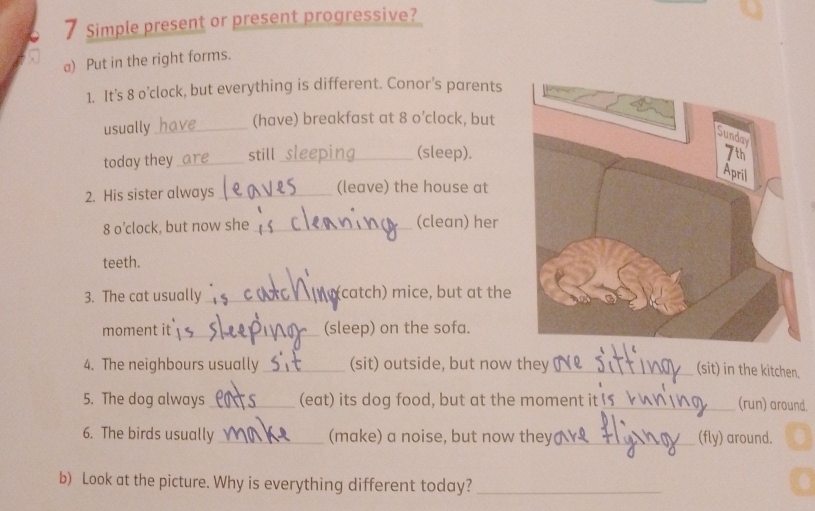 7 Simple present or present progressive?
a) Put in the right forms.
1. It's 8 o'clock, but everything is different. Conor's parents
usually have (have) breakfast at 8 o'clock, but
today they are still sleeping (sleep).
2. His sister always leaves (leave) the house at
8 o'clock, but now she is cleaning (clean) her
teeth.
3. The cat usually is catching (catch) mice, but at the
moment it is sleeping (sleep) on the sofa.
4. The neighbours usually sit (sit) outside, but now they are sitting (sit) in the kitchen.
5. The dog always eats (eat) its dog food, but at the moment it is runing (run) around.
6. The birds usually make (make) a noise, but now they are flying (fly) around.
b) Look at the picture. Why is everything different today?
Sunday
7th
April